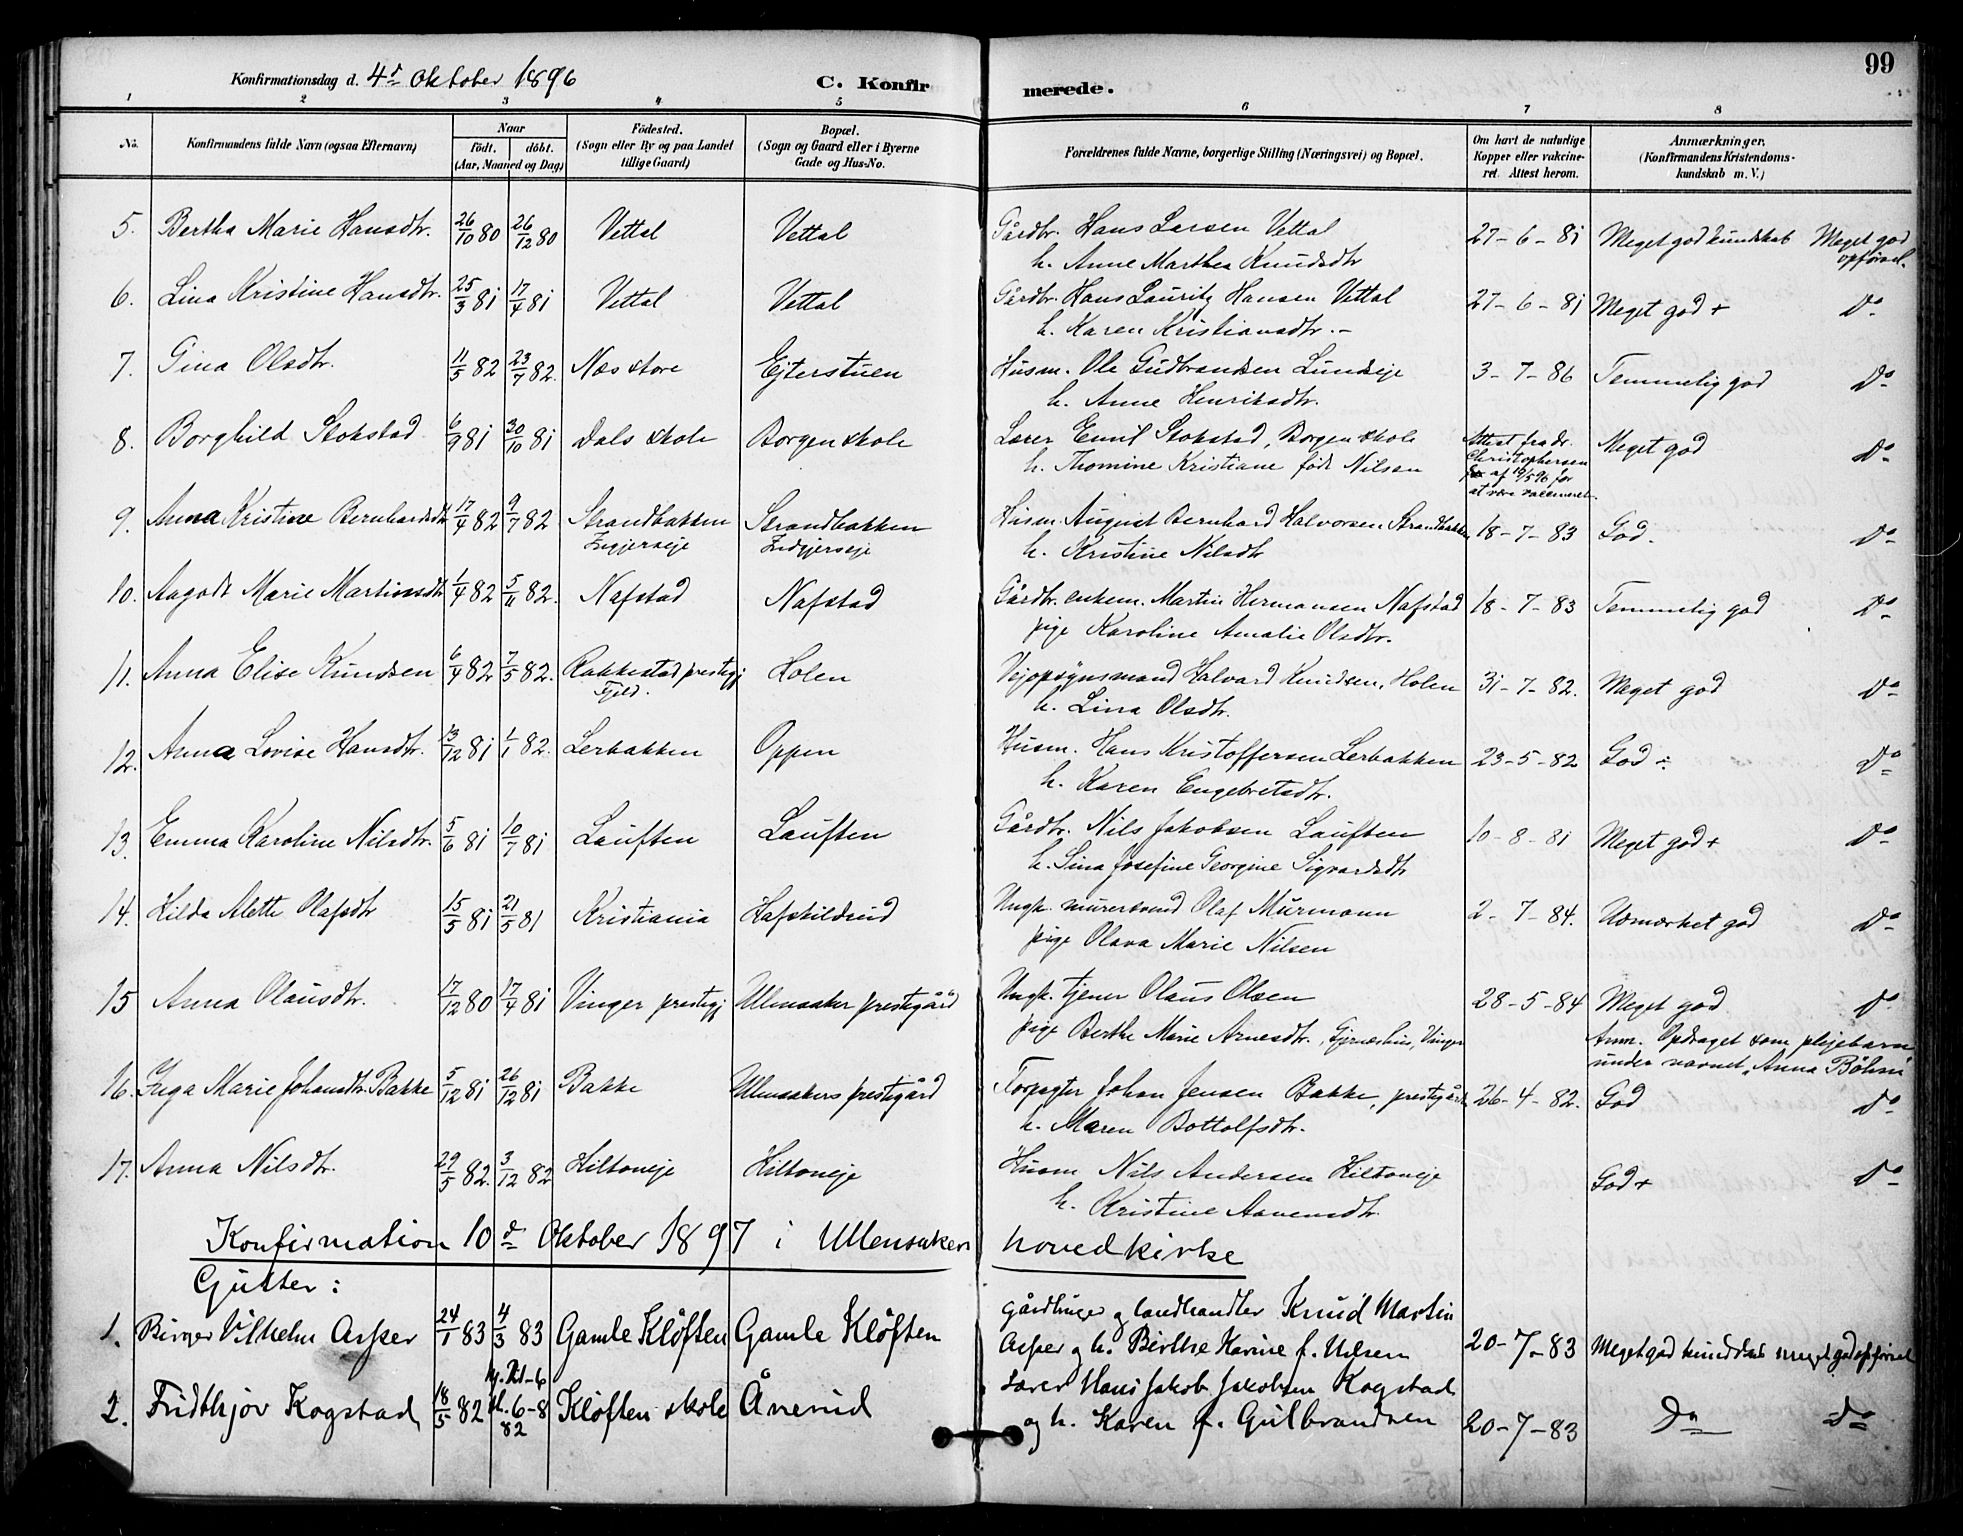 99
Konfirmationsdag d. 4de Oktober 1896
C. Konfirmerede.
1 2 3 4 5 6 7 8
No. Konfirmandens fulde Navn (ogsaa Efternavn) Naar født. døbt. (Aar, Maaned og Dag) Fødested. (Sogn eller By og paa Landet tillige Gaard) Bopæl. (Sogn og Gaard eller i Byerne Gade og Hus-No. Forældrenes fulde Navne, borgerlige Stilling (Næringsvei) og Bopæl. Om havt de naturlige Kopper eller vakcineret. Attest herom. Anmærkninger. (Konfirmandens Kristendomskundskab m. V.)
5. Bertha Marie Hansdtr. 26/10 80 26/12 80 Vettal Vettal Gårdbr. Hans Larsen Vettal 27-6-81 Meget god kundskab Meget god opførsel.
h. Anne Marthea Knudsdtr
6. Lina Kristine Hansdtr. 25/3 81 17/4 81 Vettal Vettal Gårdbr. Hans Lauritz Hansen Vettal 27-6-81 Meget god + Do
h. Karen Kristiansdtr. -
7. Gina Olsdtr. 11/5 82 23/7 82. Næs store Ejterstuen Husm. Ole Gudbrandsen Lundseje 3-7-86 Temmelig god Do
h. Anne Henriksdtr.
8. Borghild Stokstad 6/9 81 30/10 81 Dals skole Borgen skole Lærer Emil Stokstad, Borgen skole Attest fra dr. Christophersen af 10/5 96 for at være vaccineret. Meget god Do
h. Thomine Kristiane født Nilsen
9. Anna Kristine Bernhardsdtr 17/4 82 9/7 82 Strandbakken Strandbakken Husm. August Bernhard Halvorsen Strandbakken 18-7-83 God. Do
Indgjerseje h. Kristine Nilsdtr
10. Aagodt Marie Martinsdtr 1/4 82 5/11 82. Nafstad Nafstad Gårdbr. enkem. Martin Hermansen Nafstad 18-7-83 Temmelig god Do
pige Karoline Amalie Olsdtr.
11. Anna Elise Knudsen 6/4 82 7/5 82. Rakkestad prestegj Holen Vejopsynsmand Halvard Knudsen, Holen 31-7-82. Meget god Do
h. Lina Olsdtr.
12. Anna Lovise Hansdtr. 13/12 81 1/1 82. Lerbakken Oppen Husm. Hans Kristoffersen Lerbakken 23-5-82 God ÷ Do
h. Karen Engebretsdtr.
13. Emma Karoline Nilsdtr. 5/6 81 10/7 81 Lauften Lauften Gårdbr. Nils Jakobsen Lauften 10-8-81 Meget god + Do
h. Lina Josefine Georgine Sigvardsdtr
14. Hilda Alette Olafsdtr 15/5 81 21/5 81 Kristiania Hafskildsrud Ungk. murersvend Olaf Murmann 2-7-84. Udmærket god Do
pige Olava Marie Nilsen
15 Anna Olausdtr. 17/12 80 17/4 81 Vinger prestegj Ullensaker prestegård Ungk. tjener Olaus Olsen 28-5-84 Meget god Do
pige Berthe Marie Arnesdtr., Vinger Anm. Opdraget som plejebarn
under navnet „Anna Böhn"
16. Inga Marie Johansdtr. Bakke 5/12 81 26/12 81 Bakke Ullensakers prestegård Forpagter Johan Jensen Bakke, prestegård 26-4-82. God Do
h. Maren Bottolfsdtr.
17. Anna Nilsdtr. 29/5 82. 3/12 82 Hiltoneje Hiltoneje Husm Nils Andersen Hiltoneje God + Do
h. Kristine Aanensdtr.
Konfirmation 10de Oktober 1897 i Ullensakers hovedkirke
Gutter:
1. Birger Vilhelm Asper 24/1 83 4/3 83 Gamle Kløften Gamle Kløften Gårdbruger og landhandler Knud Martin
Asper og h. Birthe Karine f. Nilsen 20-7-83 Meget god kundskab meget god opførsel
2. Fridthjov Kogstad 18/5 82 6-8 82 Kløften skole Ånerud Lærer Hans Jakob Jakobsen Kogstad
og h. Karen f. Gulbrandsen 20-7-83 Do Do